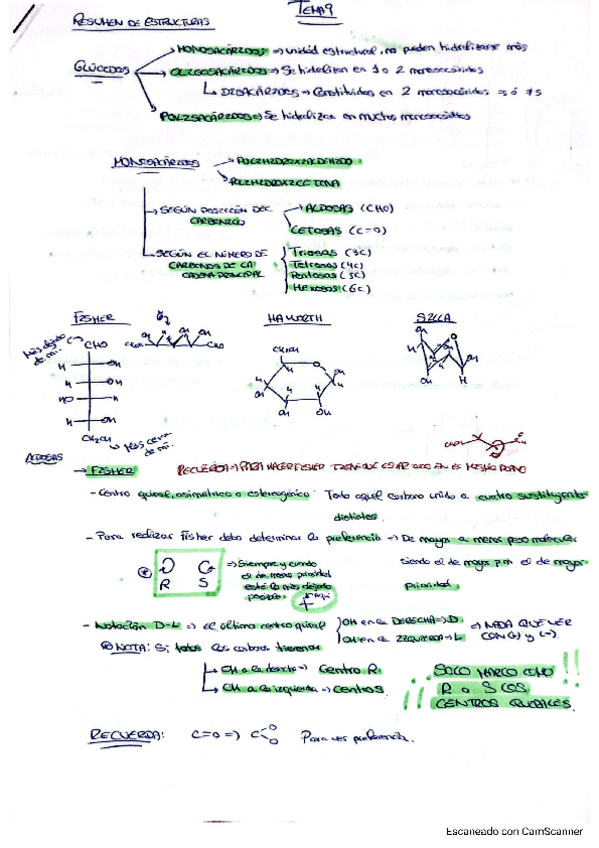 TEMA 9
RESUMEN DE ESTRUCTURAS
GLÚCIDOS
MONOSACÁRIDOS => unidad estructural, no pueden hidrolizarse más
OLIGOSACÁRIDOS => Se hidrolizan en 1 o 2 monosacáridos
DISACÁRIDOS => Constituidos en 2 monosacáridos = ó ≠s
POLISACÁRIDOS => Se hidrolizan en muchos monosacáridos
MONOSACÁRIDOS
POLIHIDROXIALDEHIDO
POLIHIDROXICETONA
SEGÚN POSICIÓN DEL CARBONILO
ALDOSAS (CHO)
CETOSAS (C=O)
SEGÚN EL NÚMERO DE CARBONOS DE LA CADENA PRINCIPAL
Triosas (3C)
Tetrosas (4C)
Pentosas (5C)
Hexosas (6C)
FISHER
HAWORTH
SILLA
Más alejado de mi.
CHO
CHO
H OH
H OH
HO H
H OH
CH2OH
más cerca de mi.
CH2OH
ALDOSAS
-> FISHER
RECUERDA -> PARA HACER FISHER TIENE QUE ESTAR TODO EN EL MISMO PLANO
- Centro quiral, asimétrico o estereogénico: Todo aquel carbono unido a cuatro sustituyentes distintos.
- Para realizar Fisher debo determinar la preferencia -> De mayor a menor peso molecular siendo el de mayor Pm el de mayor prioridad.
R S
=> Siempre y cuando el de menos prioridad esté lo más alejado posible.
- Notación D-L => el último centro quiral
OH en la DERECHA => D
OH en la IZQUIERDA => L
=> NADA QUE VER CON (+) y (-).
NOTA: Si todos los carbonos tienen
OH a la derecha => Centro R.
OH a la izquierda => Centro S.
¡¡ SOLO MARCO COMO R o S LOS CENTROS QUIRALES !!
RECUERDA: C=O => C O O Para ver preferencia.
Escaneado con CamScanner